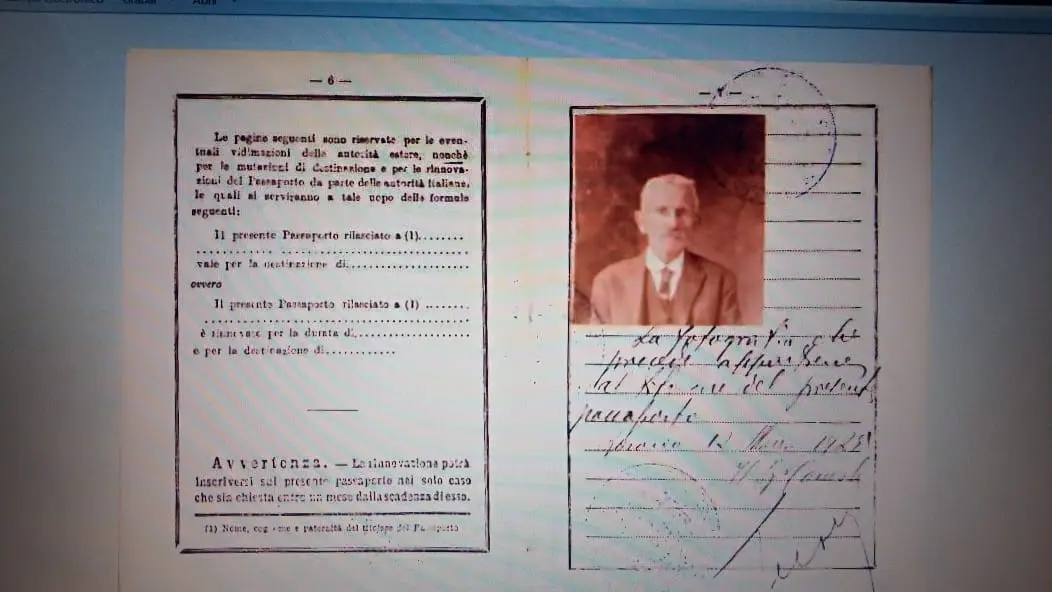 — 6 —
Le pagine seguenti sono riservate per le even-
tuali vidimazioni delle autorità estere, nonchè
per le mutazioni di destinazione e per le rinnova-
zioni del Passaporto da parte delle autorità italiane,
le quali si serviranno a tale uopo delle formule
seguenti:
Il presente Passaporto rilasciato a (1)........
vale per la destinazione di
ovvero
Il presente Passaporto rilasciato a (1) ........
è rinnovato per la durata di
e per la destinazione di............
Avvertenza. — La rinnovazione potrà
inscriversi sul presente passaporto nel solo caso
che sia chiesta entro un mese dalla scadenza di esso.
(1) Nome, cognome e paternità del titolare del Passaporto
La fotografia che
precede
al del presente
passaporto
12